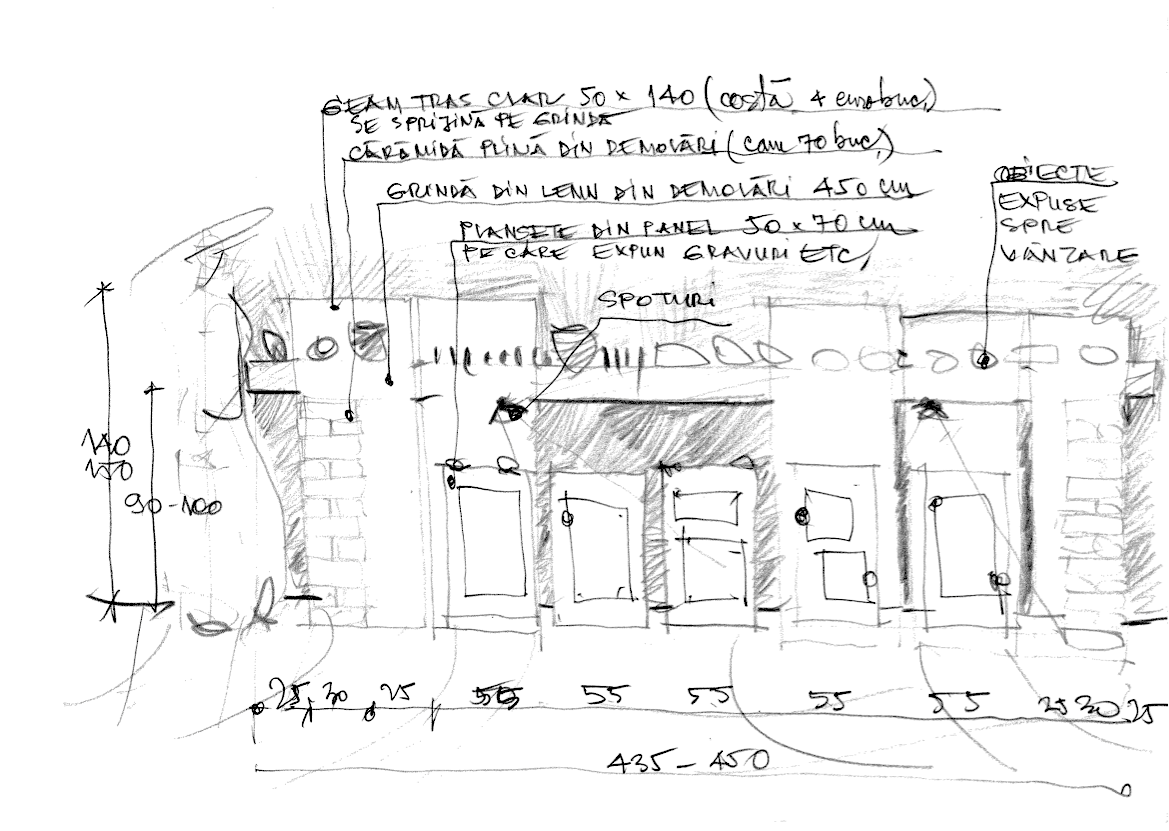 GEAM TRAS CLAR 50 x 140 (costă 4 euro buc,)
SE SPRIJINĂ PE GRINDĂ
CĂRĂMIDĂ PLINĂ DIN DEMOLĂRI (cam 70 buc,)
GRINDĂ DIN LEMN DIN DEMOLĂRI 450 cm
PLANȘETE DIN PANEL 50 x 70 cm
PE CARE EXPUN GRAVURI ETC,
OBIECTE
EXPUSE
SPRE
VÂNZARE
SPOTURI
140
150
90-100
25 30 25 55 55 55 55 55 25 30 25
435 - 450